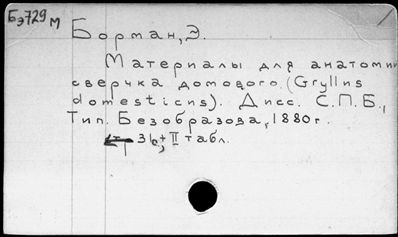 Бэ729 м
Борман, Э.
Материалы для анатомии
сверчка домового. (Gryllus
domesticus). Дисс. С.П.Б.,
Тип. Безобразова, 1880г.
36, + II табл.